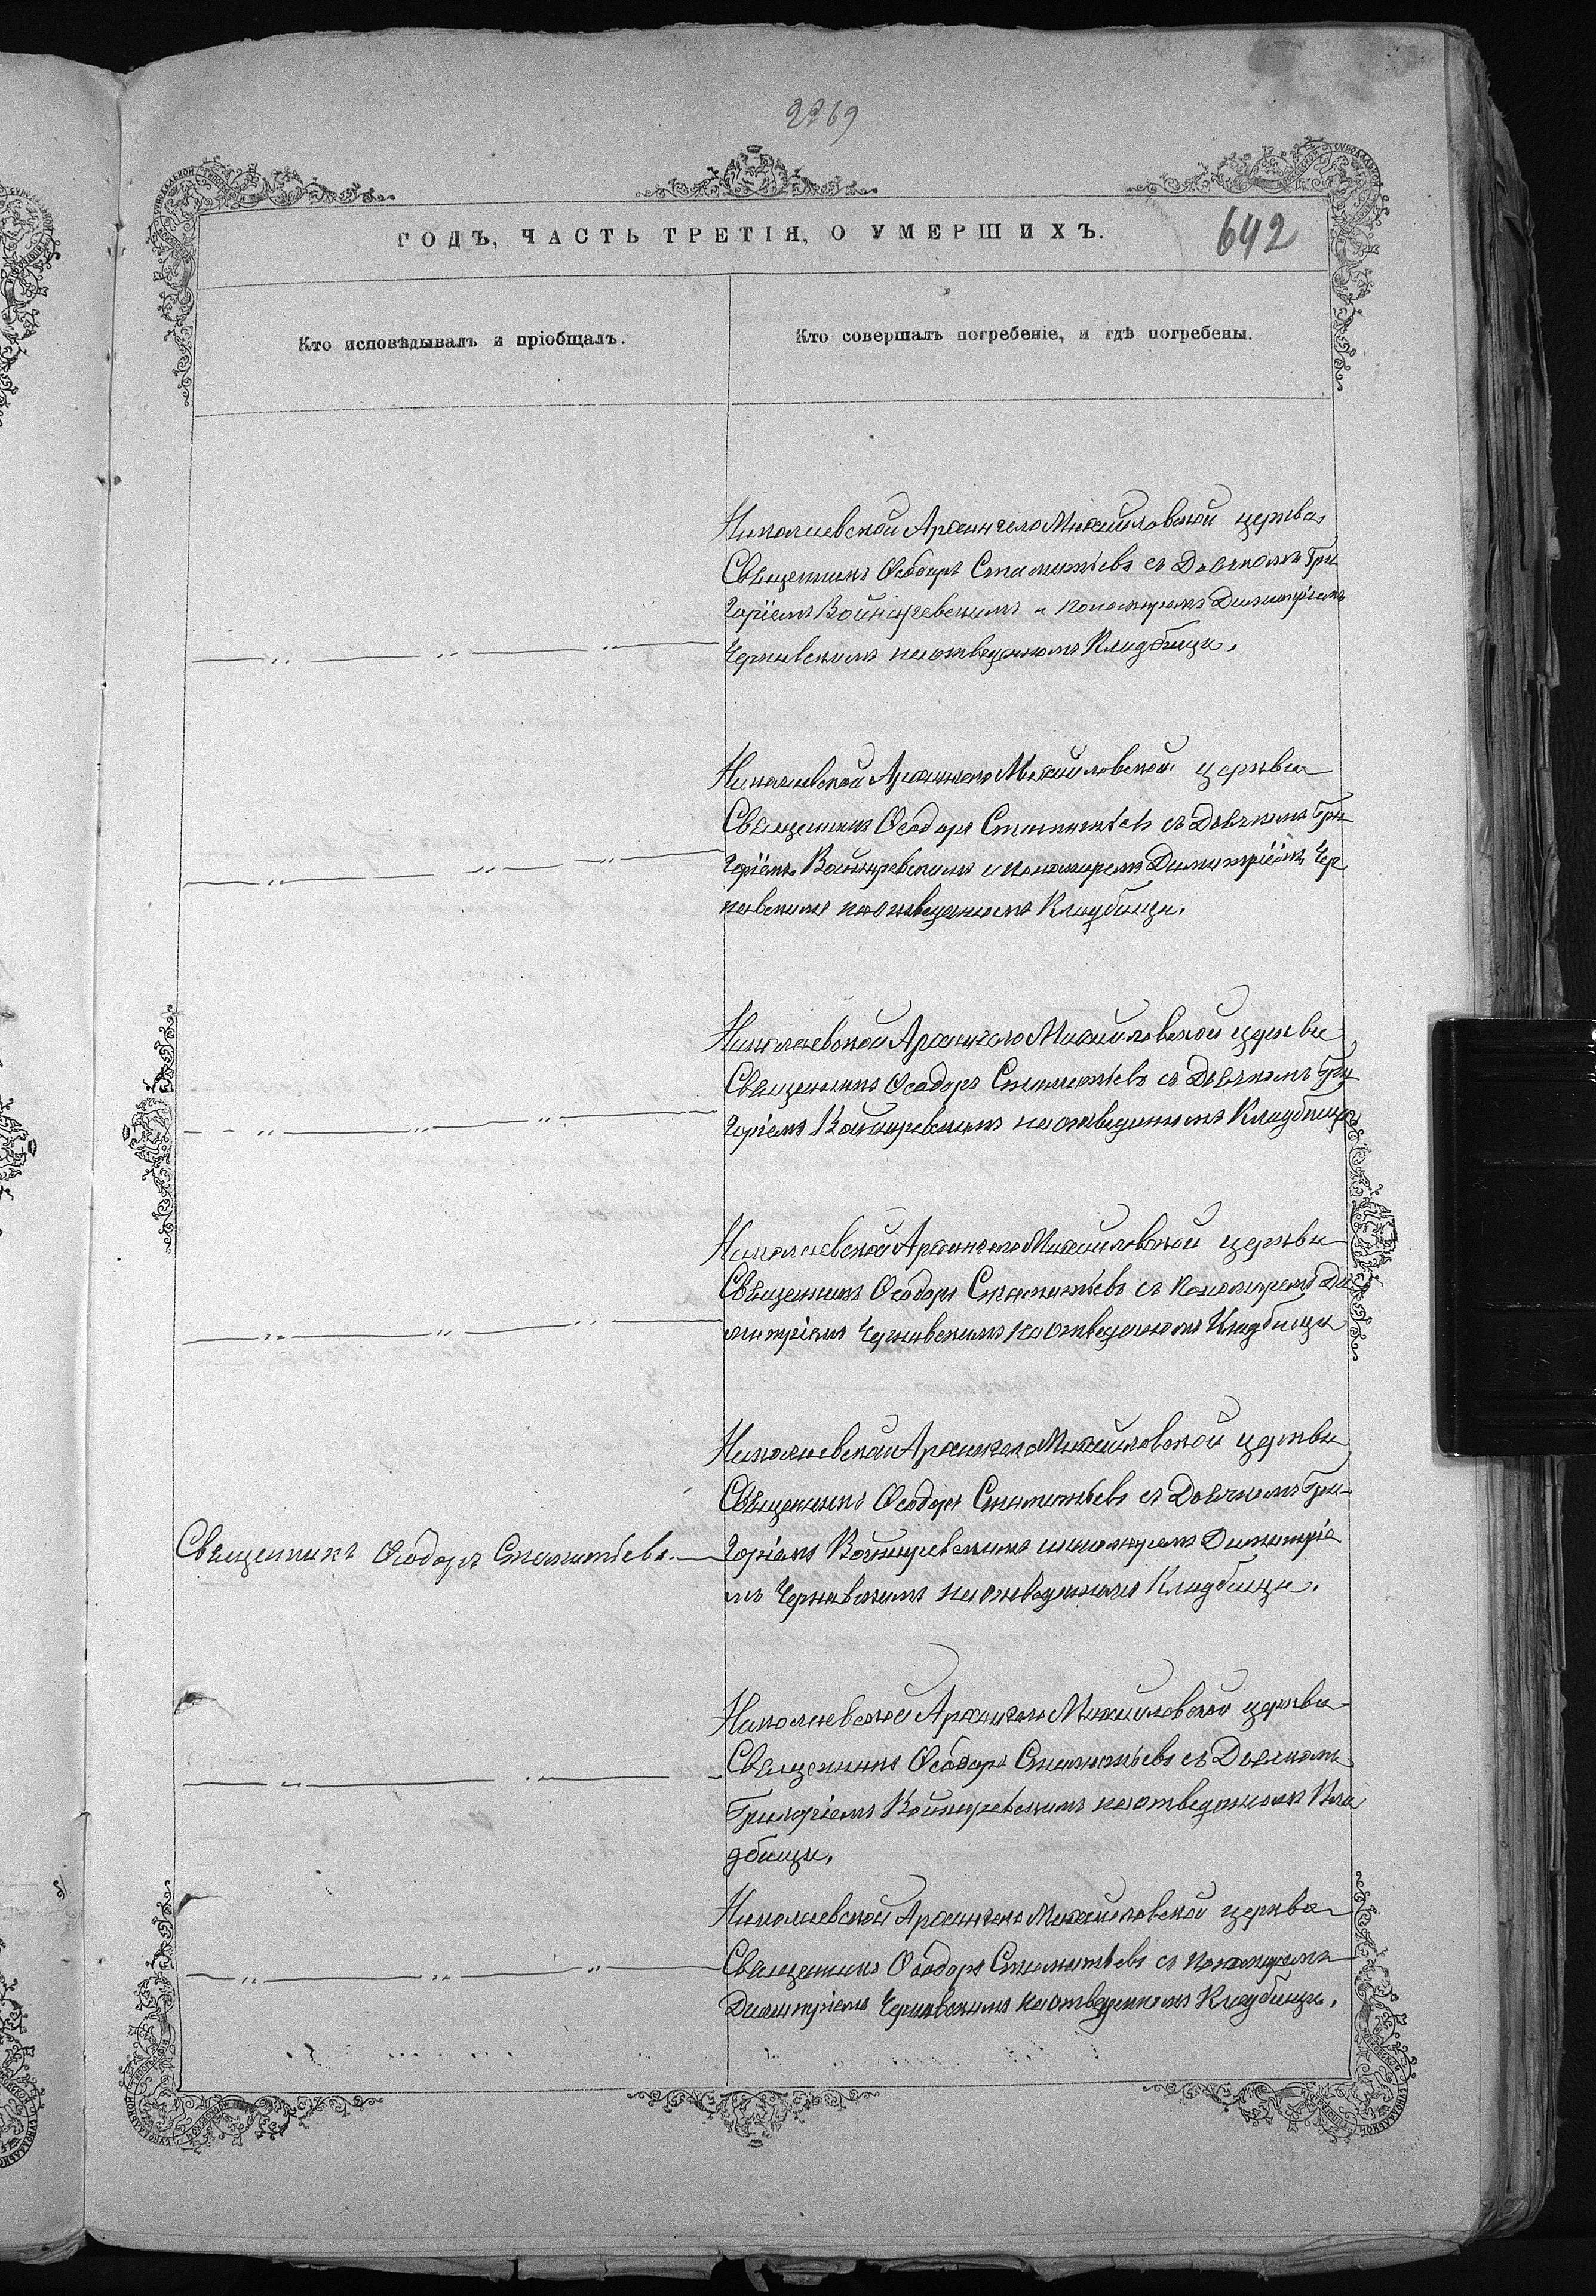 2269
ГОДЪ, ЧАСТЬ ТРЕТІЯ, О УМЕРШИХЪ.
642
Кто исповѣдывалъ и пріобщалъ.
Кто совершалъ погребеніе, и гдѣ погребены.
Николаевской Архангело Михайловской церкви
Священникъ Ѳеодоръ Стаматьевъ съ Дьячкомъ Гри
горіемъ Войнуревскимъ и пономаремъ Димитріемъ
— „ — „ — „ —
Чернявскимъ на отведенномъ Кладбищи.
Николаевской Архангело Михайловской церкви
Священникъ Ѳеодоръ Стаматьевъ съ Дьячкомъ Гри
горіемъ Войнуревскимъ и пономаремъ Димитріемъ Чер
— „ — „ — „ —
нявскимъ на отведенномъ Кладбищи.
Николаевской Архангело Михайловской церкви
Священникъ Ѳеодоръ Стаматьевъ съ Дьячкомъ Гри
горіемъ Войнуревскимъ на отведенномъ Кладбищи
— „ — „ — „ —
Николаевской Архангело Михайловской церкви
Священникъ Ѳеодоръ Стаматьевъ съ пономаремъ Ди
митріемъ Чернявскимъ на отведенномъ Кладбищи
— „ — „ — „ —
Николаевской Архангело Михайловской церкви
Священникъ Ѳеодоръ Стаматьевъ съ Дьячкомъ Гри-
Священникъ Ѳеодоръ Стаматьевъ.
горіемъ Войнуревскимъ и пономаремъ Димитріе
мъ Чернявскимъ на отведенномъ Кладбищи.
Николаевской Архангело Михайловской церкви
Священникъ Ѳеодоръ Стаматьевъ съ Дьячкомъ
— „ — „ —
Григоріемъ Войнуревскимъ на отведенномъ Кла
дбищи.
Николаевской Архангело Михайловской церкви
Священникъ Ѳеодоръ Стаматьевъ съ пономаремъ
— „ — „ — „ —
Димитріемъ Чернявскимъ на отведенномъ Кладбищи.